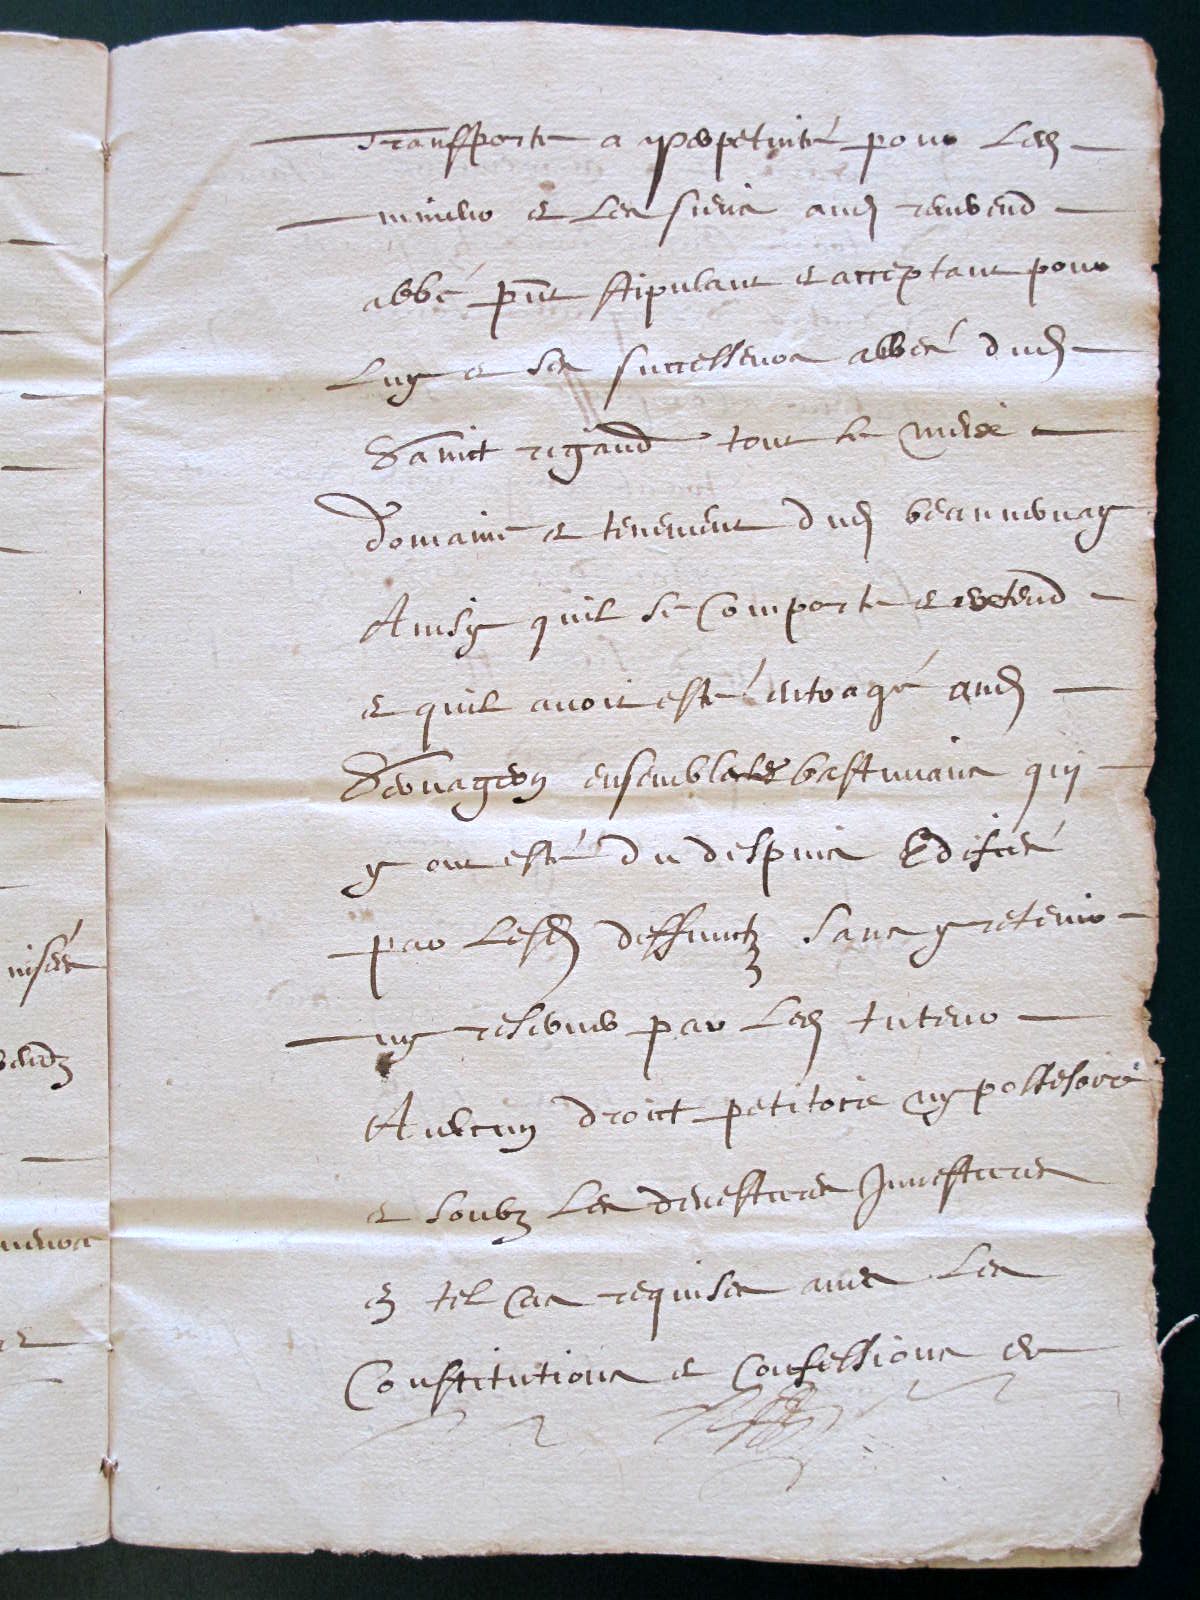 Transporte a perpetuité pour Led
mineur et Les siens aud reuvend
abbé pnt stipulant et acceptant pour
Luy et ses successeurs abbés dud
Sainct rigaud tout le
Domaine et tenement dud beauvernay
Ainsy quil se Comporte et extend
et quil avoit esté aud
ensemble les bastimans qui
y ont esté du despuis Edifiés
par Lesd deffunctz sans y retenir
ny reserver par Led tuteur
Aulcun droict petitoire ny possesoire
et soubz Les devestures Investures
En tel Cas requises avec Les
Constitutions et Confessions et
nisées
vendz